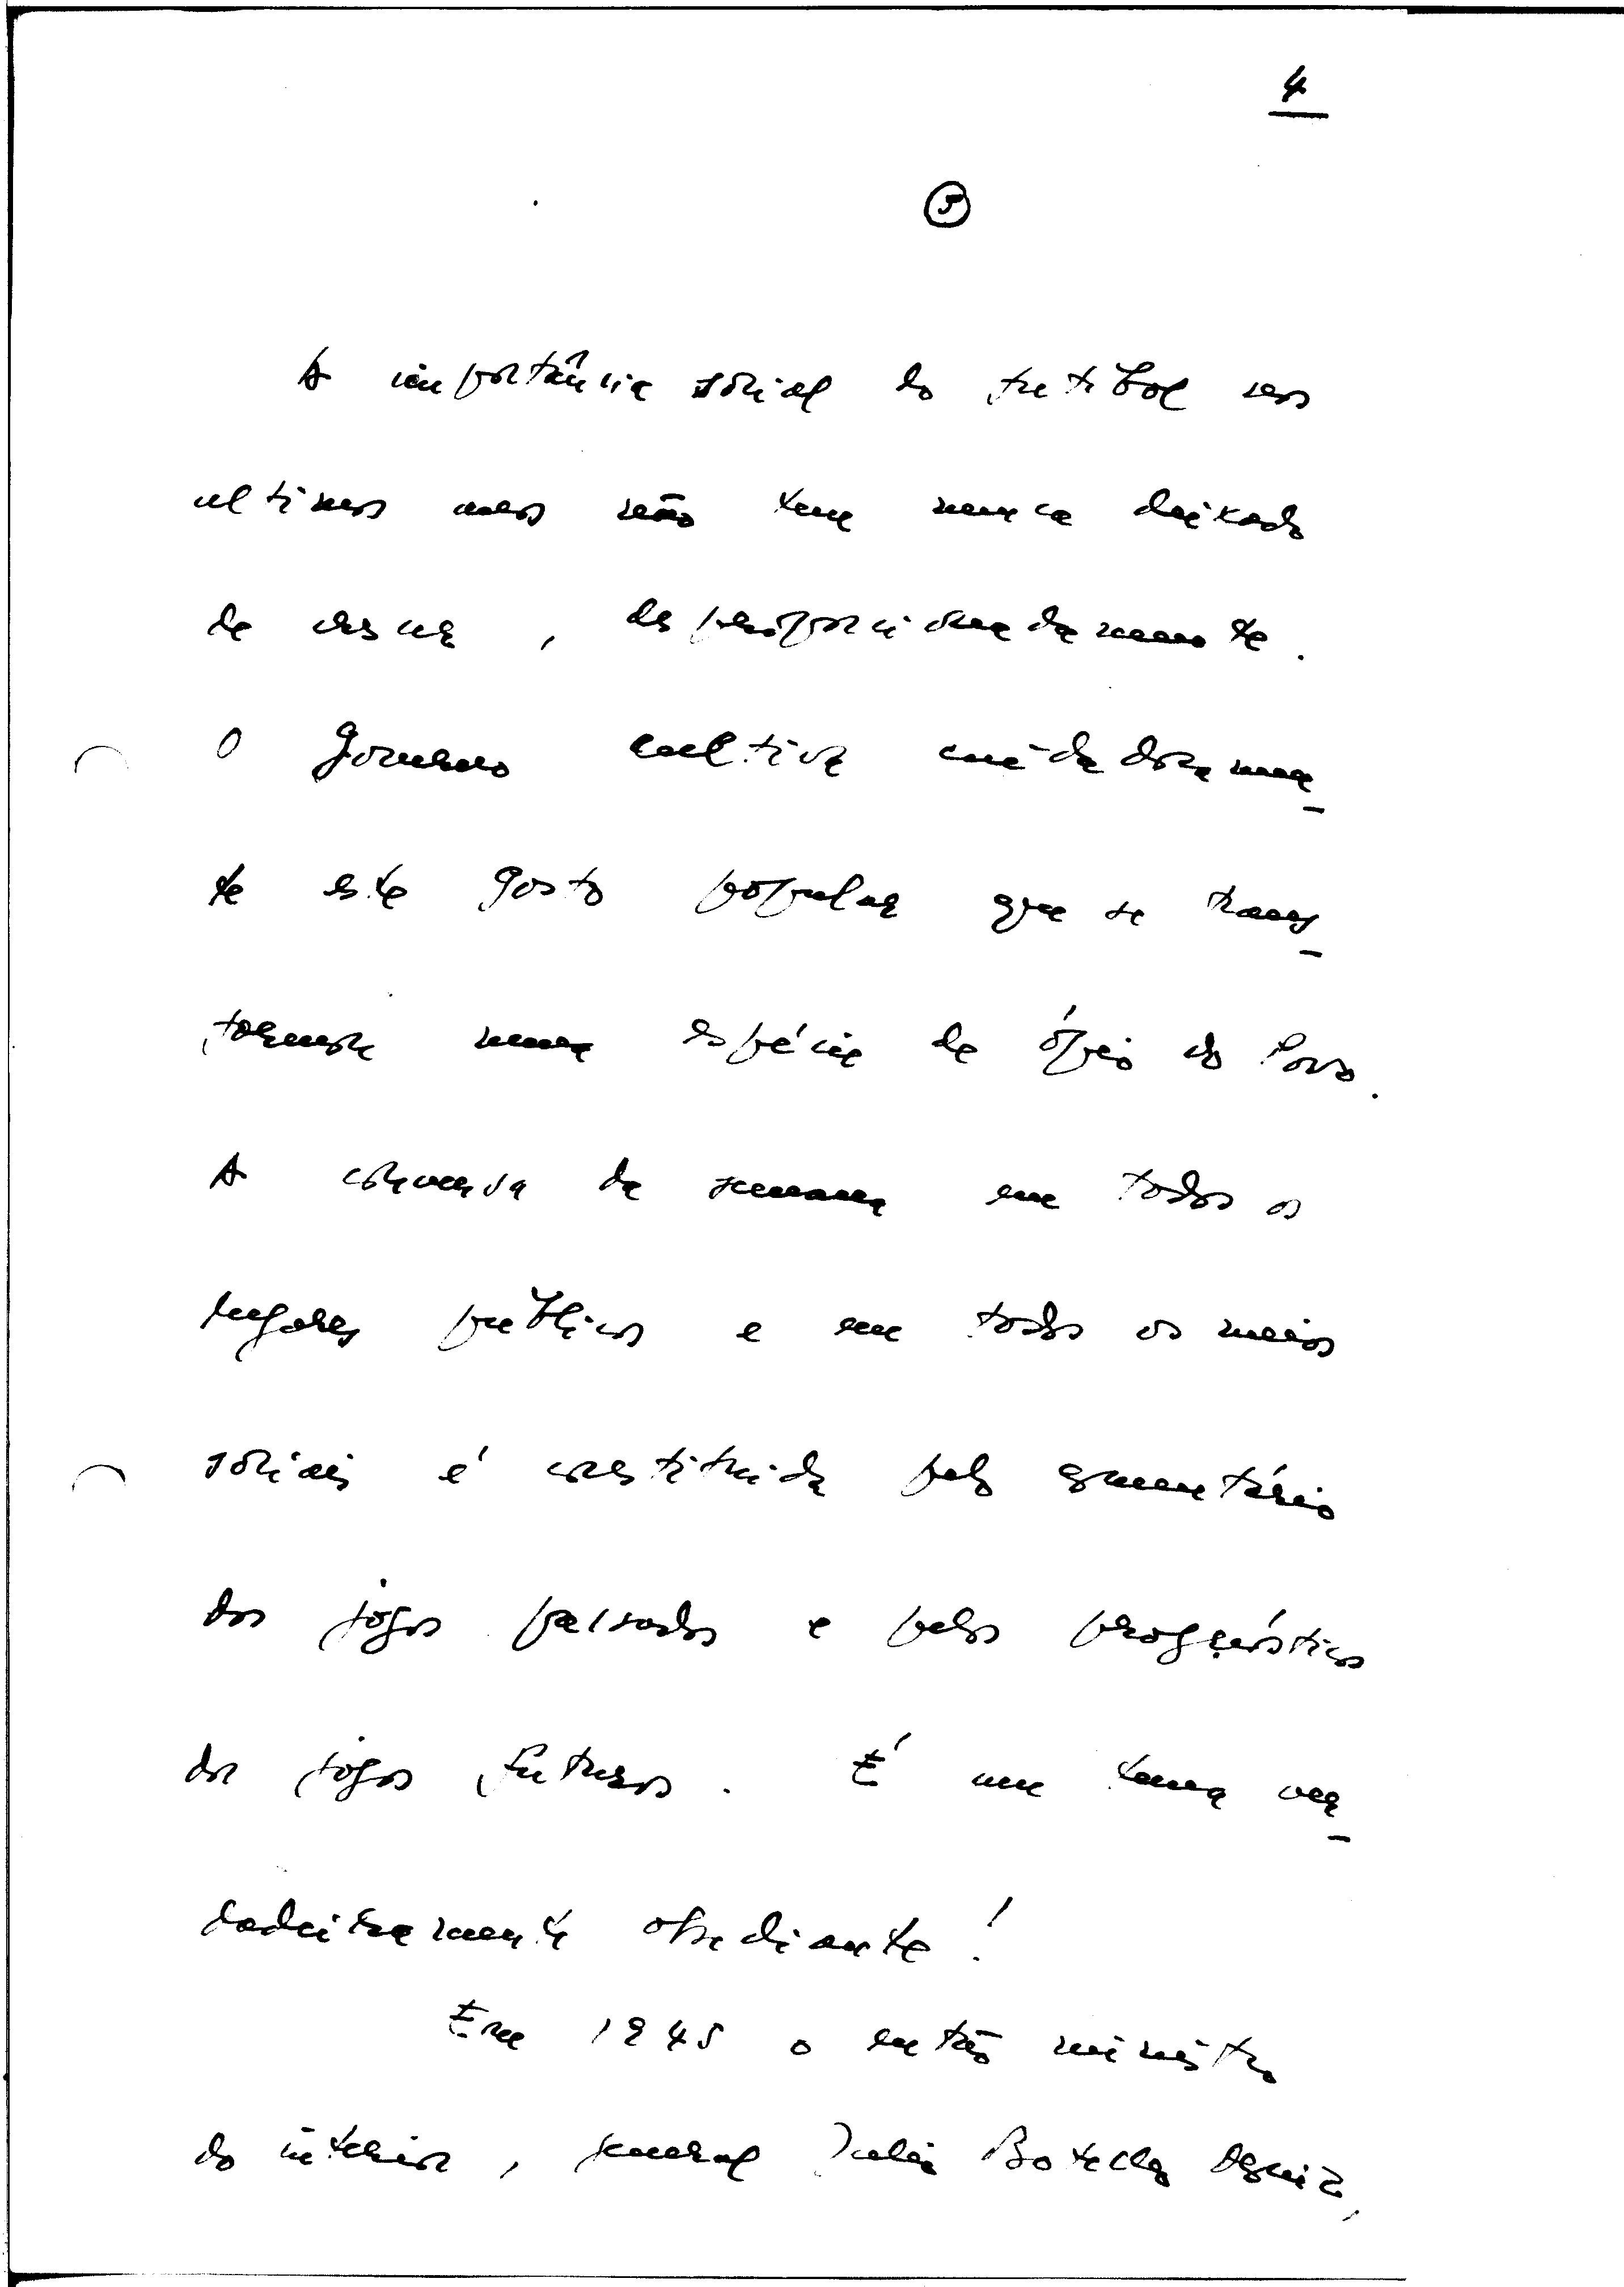 4
5
A importância social do futibol nos
ultimos anos não tem nunca deixado
de crescer, desproporcionadamente.
O Governo cultiva cuidadosamen-
te este gosto popular que se trans-
formou numa espécie de ópio do Povo.
A conversa da semana em todos os
lugares publicos e em todos os meios
sociais é constituida pelo comentário
dos jogos passados e pelos prognósticos
dos jogos futuros. É um tema ver-
dadeiramente obsediante!
Em 1945 o então ministro
do interior, general Julio Botelho Moniz,